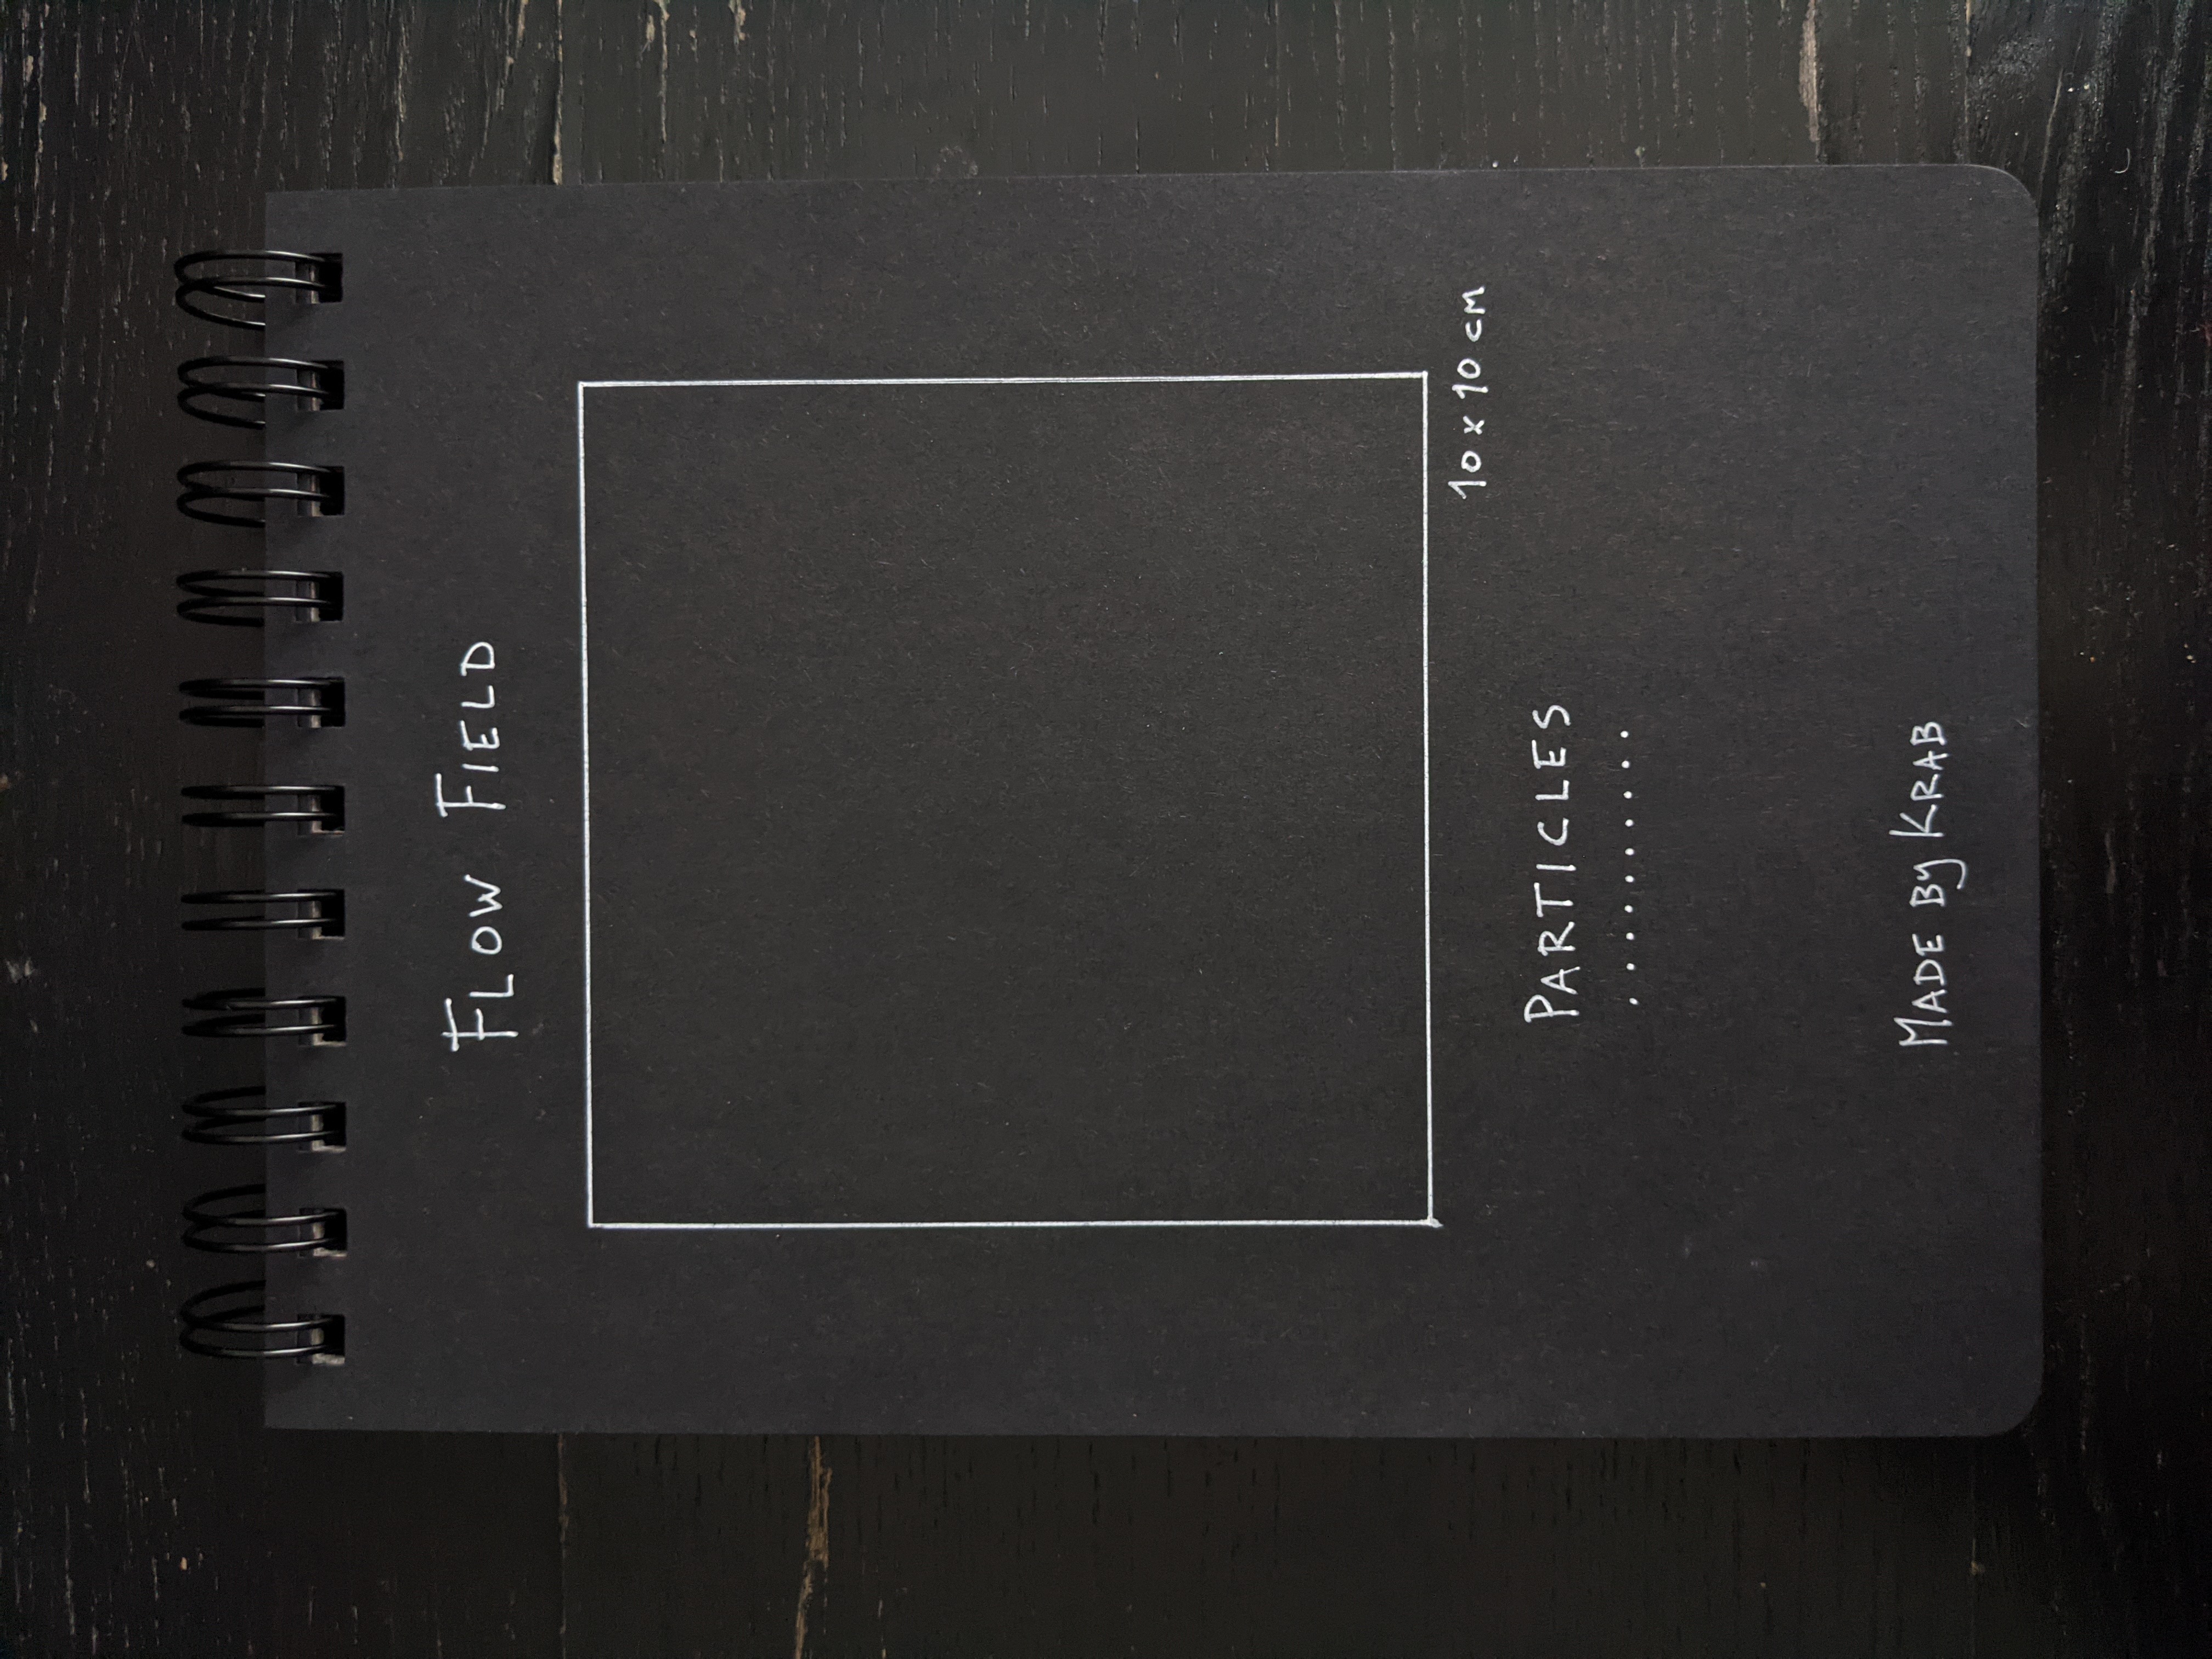 FLOW FIELD
10 x 10 cm
PARTICLES
..........
MADE BY KRAB